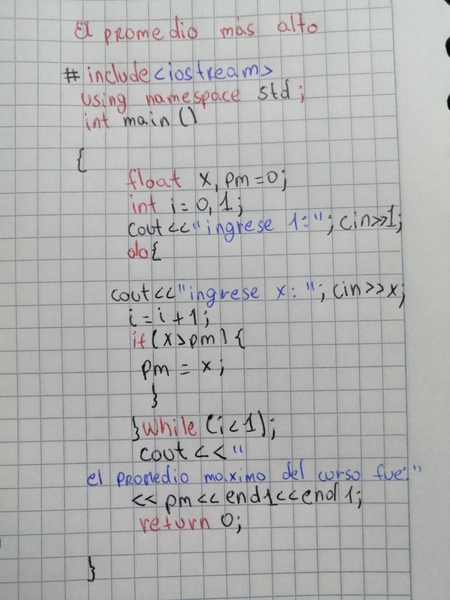 El promedio más alto
# include <iostream>
using namespace std;
int main ()
{
float x, pm=0;
int i=0, 1;
cout <<"ingrese 1:"; cin>>1;
do{
cout<<"ingrese x: "; cin>>x;
i=i+1;
if(x>pm) {
pm = x;
}
}while (i<1);
cout <<"
el promedio maximo del curso fue:"
<< pm<<end1<<end1;
return 0;
}